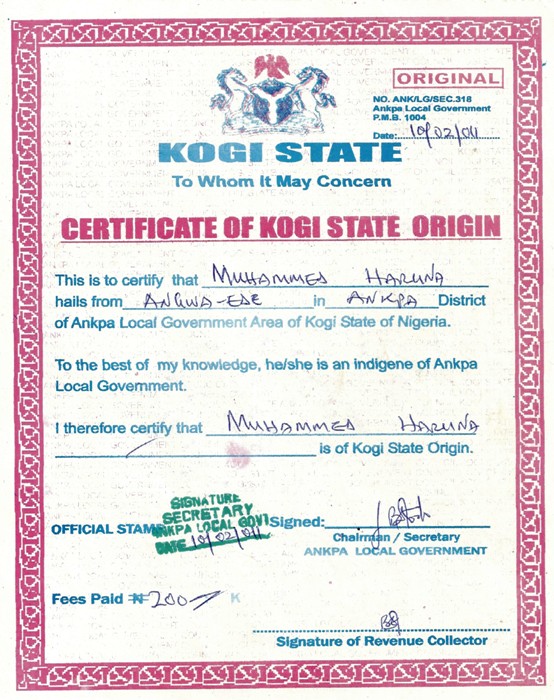 ORIGINAL
NO. ANK/LG/SEC.318
Ankpa Local Government
P.M.B. 1004
Date: 10/02/011
KOGI STATE
To Whom It May Concern
CERTIFICATE OF KOGI STATE ORIGIN
This is to certify that MUHAMMED HARUNA
hails from ANGWA-EDE in ANKPA District
of Ankpa Local Government Area of Kogi State of Nigeria.
To the best of my knowledge, he/she is an indigene of Ankpa
Local Government.
I therefore certify that MUHAMMED HARUNA
is of Kogi State Origin.
SIGNATURE
SECRETARY
ANKPA LOCAL GOVT
DATE 10/02/011
OFFICIAL STAMP
Signed:
Chairman / Secretary
ANKPA LOCAL GOVERNMENT
Fees Paid ₦ 200 K
Signature of Revenue Collector